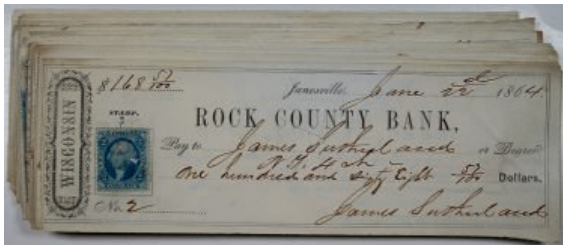 WISCONSIN
$168 57/100
Janesville, June 22d 1864.
STAMP.
ROCK COUNTY BANK,
Pay to James Sutherland or Bearer
One hundred and sixty Eight 57/100 Dollars.
No. 2
James Sutherland